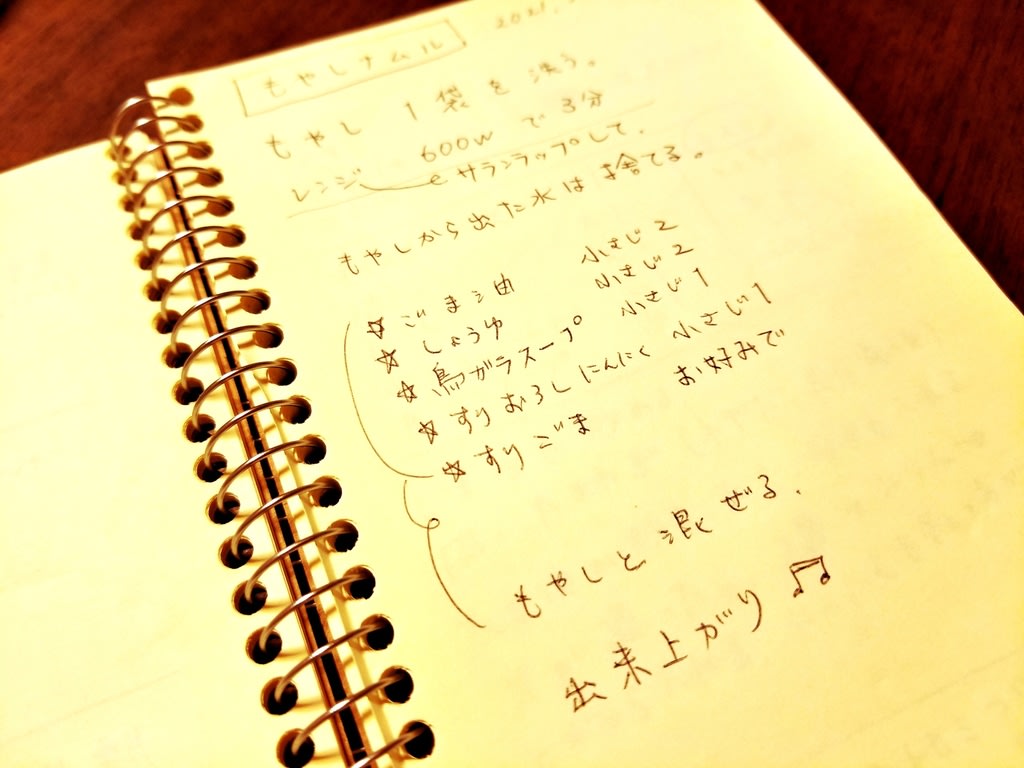 もやしナムル 2021.
もやし 1袋を洗う。
レンジ 600wで3分
サランラップして、
もやしから出た水は捨てる。
☆ ごま油 小さじ2
☆ しょうゆ 小さじ2
☆ 鳥ガラスープ 小さじ1
☆ すりおろしにんにく 小さじ1
☆ すりごま お好みで
もやしと混ぜる.
出来上がり♫